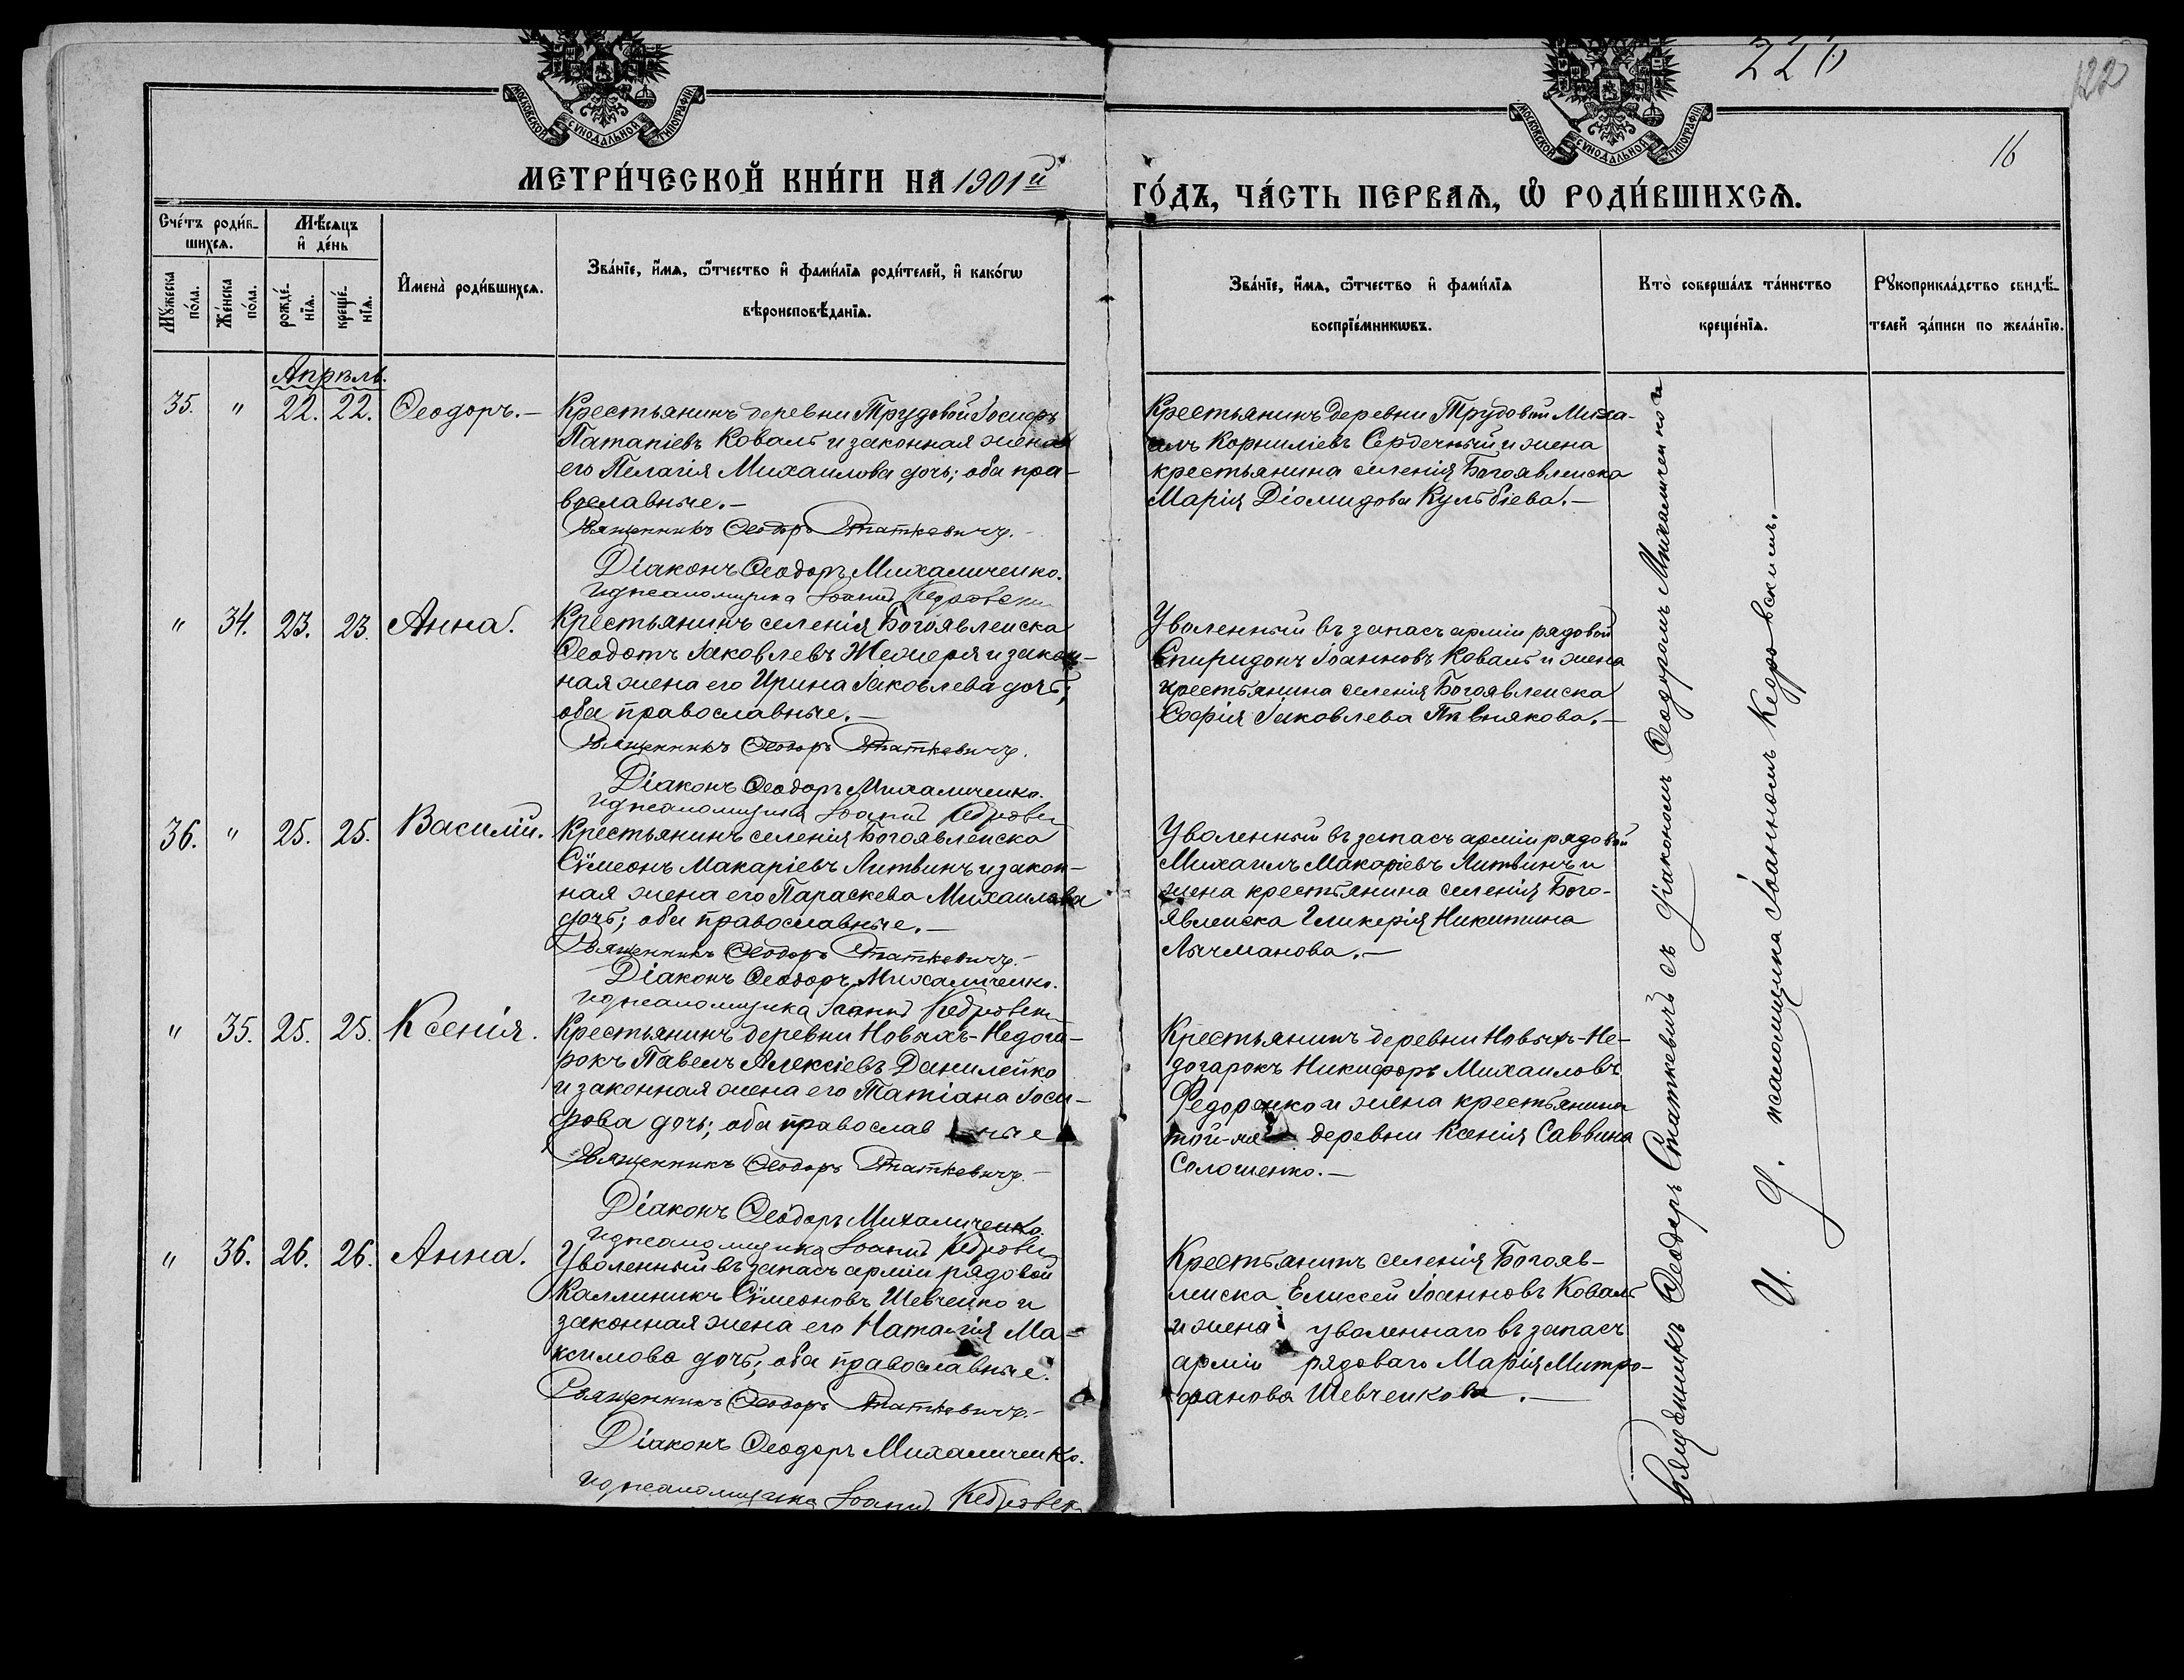 226
122
16
МОСКОВСКОЙ СѴНОДАЛЬНОЙ ТИПОГРАФІИ
МОСКОВСКОЙ СѴНОДАЛЬНОЙ ТИПОГРАФІИ
МЕТРИ́ЧЕСКОЙ КНИ́ГИ НА 1901й
ГО́ДЪ, ЧА́СТЬ ПЕРВАѦ, Ѡ РОДИ́ВШИХСѦ.
Сче́тъ роди́в-
шихсѧ.
Мѣсѧцъ
и де́нь
Мꙋжеска
по́ла.
Же́нска
по́ла.
рожде́-
нїѧ.
креще́-
нїѧ.
Имена̀ роди́вшихсѧ.
Зва́нїе, и́мѧ, ѻ҆́тчество и фами́лїѧ роди́телей, и како́гѡ
вѣроисповѣ́данїѧ.
Зва́нїе, и́мѧ, ѻ҆́тчество и фами́лїѧ
воспрїе́мникѡвъ.
Кто̀ соверша́лъ та́инство
креще́нїѧ.
Рꙋкоприкла́дство свидѣ́-
телей за́писи по жела́нїю.
Апрѣль.
35. " 22. 22. Ѳеодоръ.—
Крестьянинъ деревни Трудовой Іосифъ
Патапіевъ Коваль и законная жена
его Пелагія Михаилова дочь; оба пра-
вославные.—
Священникъ Ѳеодоръ Статкевичъ.—
Діаконъ Ѳеодоръ Михаличенко.
И д псаломщика Іоаннъ Кедровскі
Крестьянинъ деревни Трудовой Миха-
илъ Корниліевъ Сердечный и жена
крестьянина селенія Богоявленска
Марія Діомидова Кульбіева.—
" 34. 23. 23. Анна.
Крестьянинъ селенія Богоявленска
Ѳеодотъ Іаковлевъ Жежеря и закон-
ная жена его Ирина Іаковлева дочь;
оба православные.—
Священникъ Ѳеодоръ Статкевичъ.
Діаконъ Ѳеодоръ Михаличенко.
И д псаломщика Іоаннъ Кедровск
Уволенный въ запасъ арміи рядовой
Спиридонъ Іоанновъ Коваль и жена
крестьянина селенія Богоявленска
Софія Іаковлева Пивнякова.—
36. " 25. 25. Василій.
Крестьянинъ селенія Богоявленска
Сѵмеонъ Макаріевъ Литвинъ и закон-
ная жена его Параскева Михаилова
дочь; оба православные.—
Священникъ Ѳеодоръ Статкевичъ.—
Діаконъ Ѳеодоръ Михаличенко.
И д псаломщика Іоаннъ Кедровск
Уволенный въ запасъ арміи рядовой
Михаилъ Макаріевъ Литвинъ и
жена крестьянина селенія Бого-
явленска Гликерія Никитина
Лычманова.—
" 35. 25. 25. Ксенія.
Крестьянинъ деревни Новыхъ-Недога-
рокъ Павелъ Алексіевъ Данилейко
и законная жена его Татіана Іоси-
фова дочь; оба православные
Священникъ Ѳеодоръ Статкевичъ.—
Діаконъ Ѳеодоръ Михаличенко
И д псаломщика Іоаннъ Кедровск
Крестьянинъ деревни Новыхъ-Не-
догарокъ Никифоръ Михаиловъ
Федоренко и жена крестьянина
той-же деревни Ксенія Саввина
Солошенко.—
" 36. 26. 26. Анна.
Уволенный въ запасъ арміи рядовой
Каллиникъ Сѵмеоновъ Шевченко и
законная жена его Наталія Ма-
ксимова дочь; оба православные.
Священникъ Ѳеодоръ Статкевичъ.—
Діаконъ Ѳеодоръ Михаличенко.
И д псаломщика Іоаннъ Кедровск
Крестьянинъ селенія Богояв-
ленска Елиссей Іоанновъ Коваль
и жена уволеннаго въ запасъ
арміи рядоваго Марія Митро-
фанова Шевченкова.—
Священникъ Ѳеодоръ Статкевичъ съ діакономъ Ѳеодоромъ Михаличенко и
И. д. псаломщика Іоанномъ Кедровскимъ.—